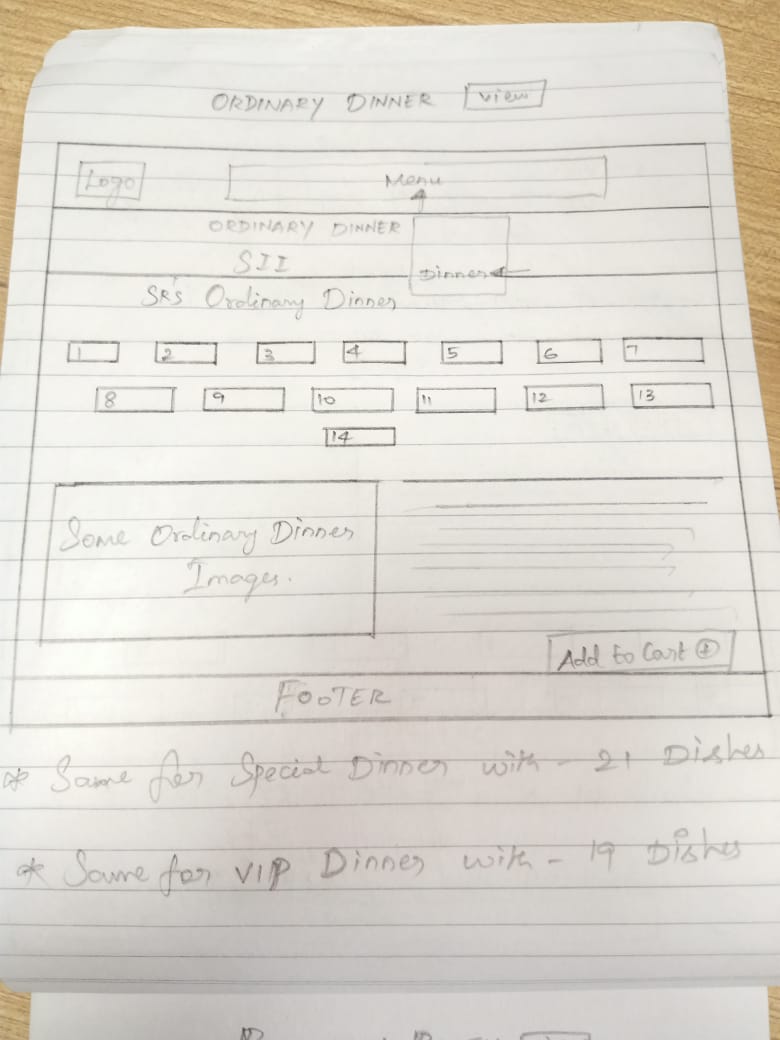 ORDINARY DINNER view
Logo Menu
ORDINARY DINNER
SII
Dinner
SR's Ordinary Dinner
1 2 3 4 5 6 7
8 9 10 11 12 13
14
Some Ordinary Dinner
Images.
Add to Cart +
FOOTER
* Same for Special Dinner with - 21 Dishes
* Same for VIP Dinner with - 19 Dishes